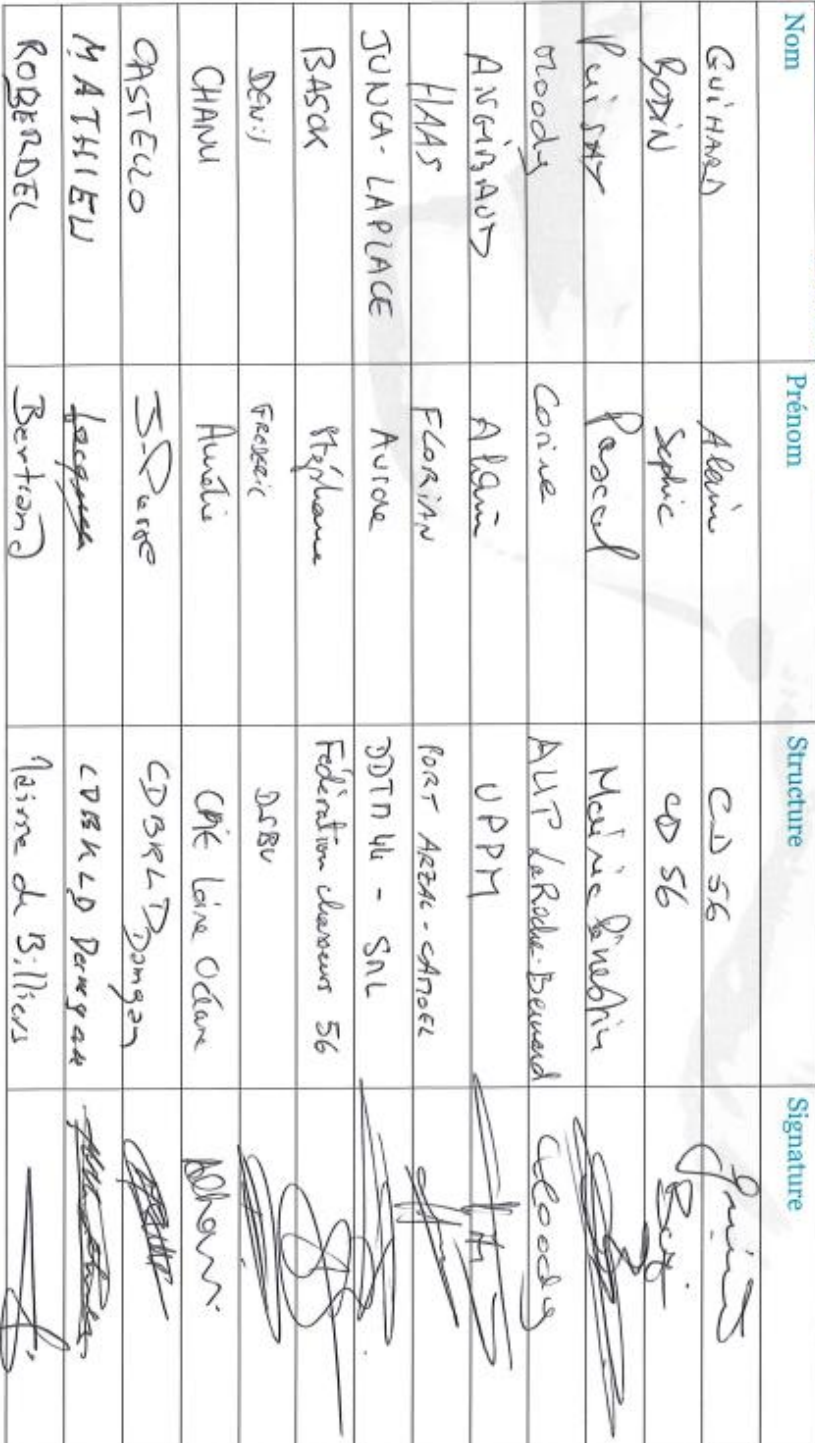 Nom Prénom Structure Signature
GUIHARD Alain CD 56
BODIN Sophie CD 56
PUISAY Pascal Mairie Pénestin
Moody Corine AUP La Roche-Bernard Cloody
ANGIBAUD Alain UPPM
HAAS FLORIAN PORT ARZAL-CAMOEL
JUNCA-LAPLACE Aurore DDTM 44 - SML
BASCK Stéphane Fédération chasseurs 56
DENIS FREDERIC
CHANU Aurélie CPIE Loire Océane
CASTELLO J-Pierre CDBKLD Damgan
MATHIEU Jacques CDBKLD Damgan
ROBERDEL Bertrand Mairie de Billiers